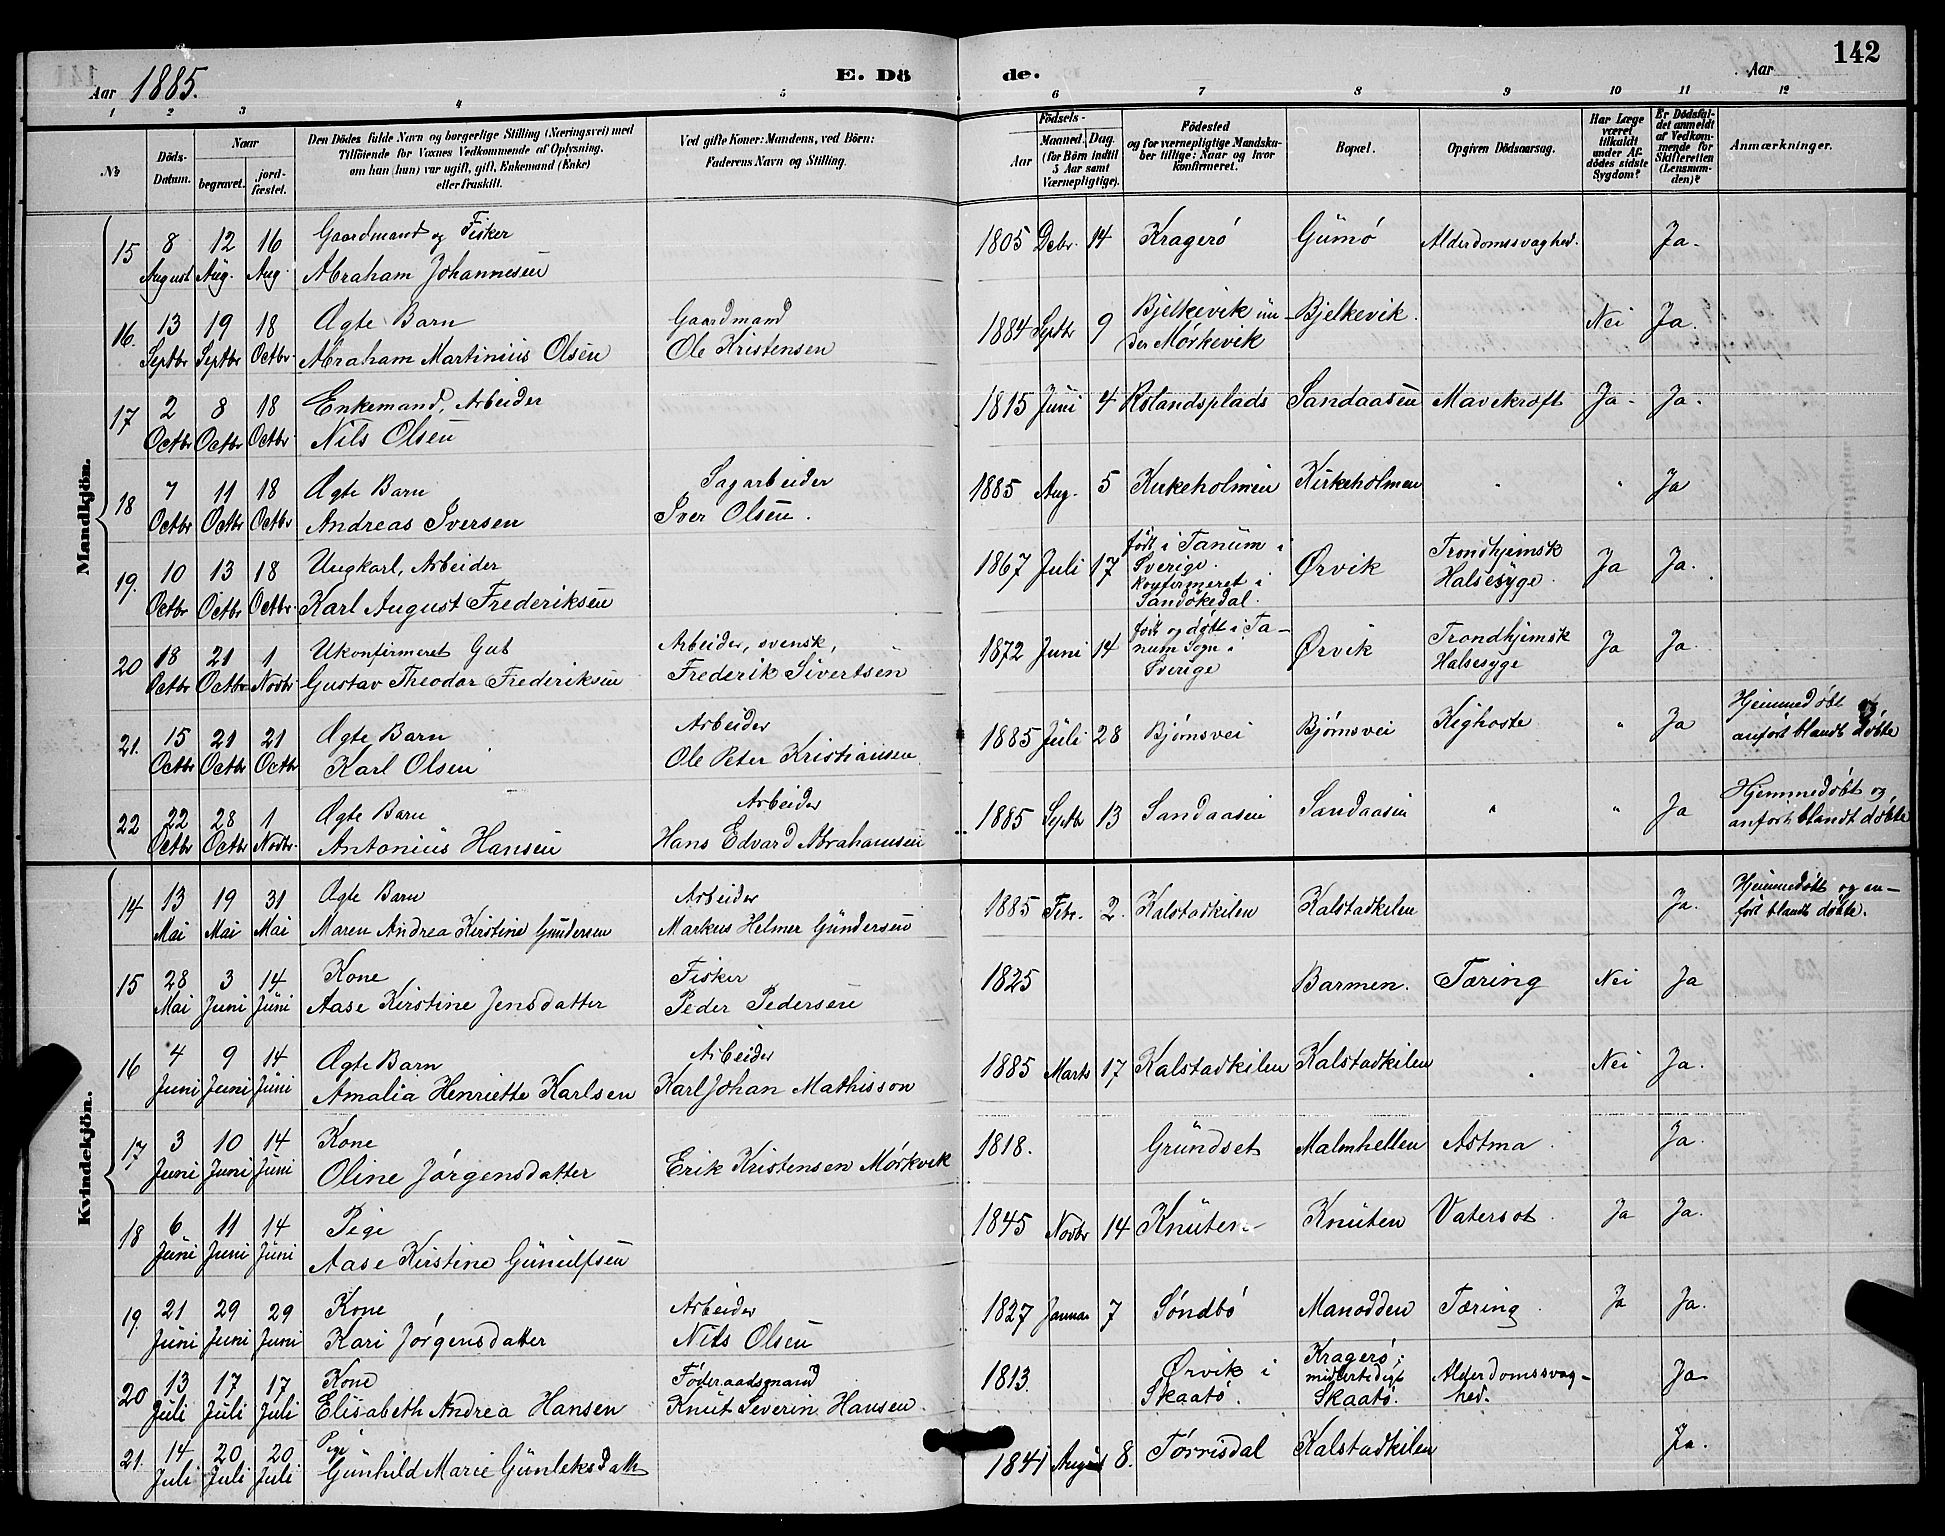 Aar 1885. E. Dö de. Aar 142
1 2 3 4 5 6 7 8 9 10 11 12
No
Döds-Datum.
Naar begravet. jord-fæstet.
Den Dödes fulde Navn og borgerlige Stilling (Næringsvei) med
Tilföiende for Voxnes Vedkommende af Oplysning,
om han (hun) var ugift, gift, Enkemand (Enke)
eller fraskilt.
Ved gifte Koner: Mandens, ved Börn:
Faderens Navn og Stilling.
Födsels-
Aar Maaned. Dag.
(for Börn indtil
5 Aar samt
Værnepligtige).
Födested
og for værnepligtige Mandska-
ber tillige: Naar og hvor
konfirmeret.
Bopæl.
Opgiven Dödsaarsag.
Har Læge
været
tilkaldt
under Af-
dödes sidste
Sygdom?
Er Dödsfal-
det anmeldt
af Vedkom-
mende for
Skifteretten
(Lensman-
den)?
Anmærkninger.
Mandkjön.
15 8 August 12 Aug. 16 Aug. Gaardmand og Fisker
Abraham Johannesen 1805 Debr. 14 Kragerö Gumö Alderdomssvaghed. Ja.
16. 13 Septbr 19 Septbr 18 Octbr. Ægte Barn
Abraham Martinius Olsen Gaardmand
Ole Kristensen 1884 Septbr 9 Bjelkevik un-
der Mörkevik Bjelkevik. Nei Ja.
17 2 Octbr 8 Octbr 18 Octbr. Enkemand, Arbeider
Nils Olsen 1815 Juni 4 Rolandsplads Sandaasen Mavekræft Ja. Ja.
18 7 Octbr 11 Octbr 18 Octbr Ægte Barn
Andreas Iversen Sagarbeider
Iver Olsen. 1885 Aug. 5 Kirkeholmen Kirkeholmen " " Ja
19. 10 Octbr 13 Octbr 18 Octbr. Ungkarl, Arbeider
Karl August Frederiksen 1867 Juli 17 født i Tanum i
Sverige.
konfirmeret i
Sandökedal. Ørvik Trondhjemsk
Halsesyge. Ja Ja.
20 18 Octbr 21 Octbr 1 Novbr. Ukonfirmeret Gut
Gustav Theodor Frederiksen Arbeider, svensk,
Frederik Sivertsen 1872 Juni 14 født og døbt i Ta-
num Sogn i
Sverige Ørvik Trondhjemsk
Halsesyge Ja Ja.
21. 15 Octbr 21 Octbr 21 Octbr Ægte Barn
Karl Olsen Arbeider
Ole Peter Kristiansen 1885 Juli 28 Bjørnsvei Bjørnsvei Kighoste " Ja Hjemmedøbt og
anført blandt døbte
22 22 Octbr 28 Octbr 1 Novbr. Ægte Barn
Antonius Hansen Arbeider
Hans Edvard Abrahamsen 1885 Septbr 13 Sandaasen Sandaasen " " Ja Hjemmedøbt og
anført blandt døbte
Kvindekjön.
14 13 Mai 19 Mai 31 Mai Ægte Barn
Maren Andrea Kirstine Gundersen Arbeider
Markus Helmer Gundersen 1885 Febr. 2. Kalstadkilen Kalstadkilen Ja. Hjemmedøbt og an-
ført blandt døbte.
15 28 Mai 3 Juni 14 Juni Kone
Aase Kirstine Jensdatter Fisker
Peder Pedersen 1825 Barmen. Tæring Nei Ja
16 4 Juni 9 Juni 14 Juni Ægte Barn
Amalia Henriette Karlsen Arbeider
Karl Johan Mathisson 1885 Marts 17 Kalstadkilen Kalstadkilen " Nei Ja.
17 3 Juni 10 Juni 14 Juni Kone
Oline Jørgensdatter Erik Kristensen Mørkvik 1818. Grundset Malmhellen Astma. Ja.
18 6 Juni 11 Juni 14 Juni Pige
Aase Kirstine Gunulfsen 1845 Novbr 14 Knuten Knuten Vatersot. Ja Ja.
19. 21 Juni 29 Juni 29 Juni Kone
Kari Jørgensdatter Arbeider
Nils Olsen 1827 Januar 7 Söndbö Manodden Tæring. Ja Ja.
20 13 Juli 17 Juli 17 Juli Kone
Elisabeth Andrea Hansen Føderaadsmand
Knut Severin Hansen. 1813. Ørvik i
Skaatö. Kragerö;
midlertidigt
Skaatö. Alderdomssvag-
hed. Ja
21. 14 Juli 20 Juli 20 Juli Pige
Gunhild Marie Gunleksdatt 1841 August 8. Tørrisdal Kalstadkilen Ja.